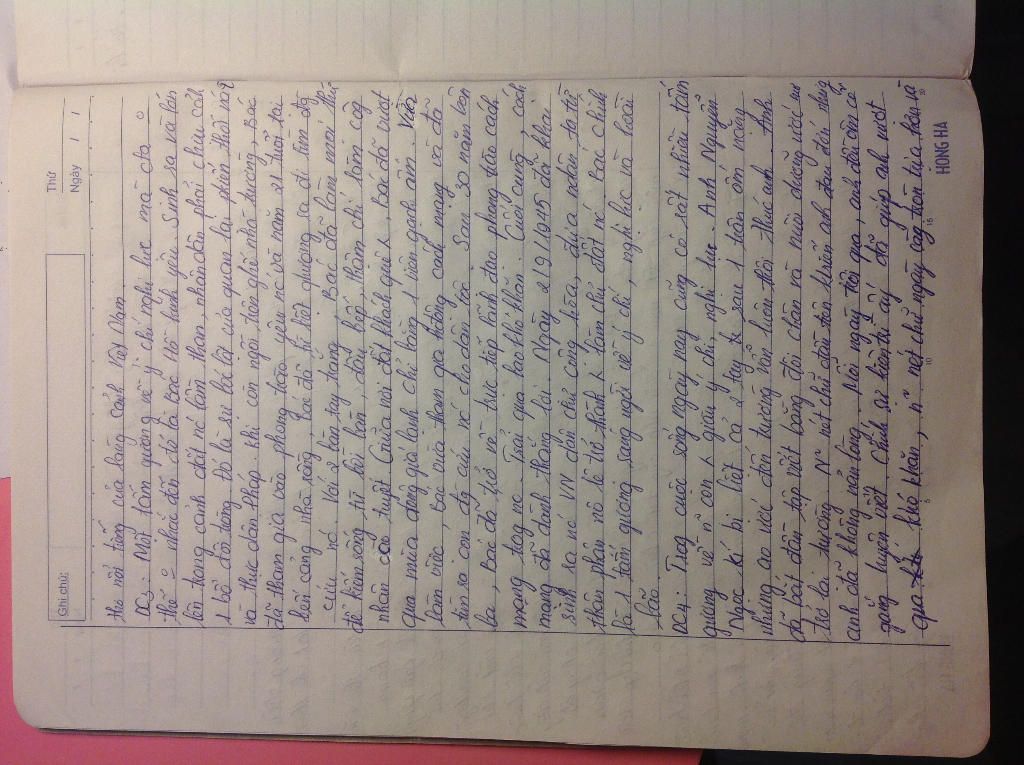 Thứ
Ngày / /
Ghi chú:
thơ nổi tiếng của làng cảnh Việt Nam.
DC3: Một tấm gương về ý chí nghị lực mà cta o
thể o nhắc đến đó là Bác Hồ kính yêu. Sinh ra và lớn
lên trong cảnh đất nc lầm than, nhân dân phải chịu cảnh
1 bồ đô tròng đó là sự bóc lột của quan lại phiến thối nát
và thực dân Pháp. Khi còn ngồi trên ghế nhà trường, Bác
đã tham gia vào phong trào yêu nc và năm 21 tuổi tại
bến cảng nhà rồng, Bác đã lên đường ra đi tìm đg
cứu nc. Với 2 bàn tay trắng, Bác đã làm mọi thứ
để kiếm sống từ bồi bàn, đầu bếp, thậm chí làm công
nhân cào tuyết. Giữa nơi đất khách quê, Bác đã vượt
qua mùa đông giá lạnh chỉ bằng 1 viên gạch ấm. Vừa
làm việc, Bác vừa tham gia hđộng cách mạng và đã
tìm ra con đg cứu nc cho dân tộc. Sau 30 năm bôn
ba, Bác đã trở về trực tiếp lãnh đạo phong trào cách
mạng trong nc. Trải qua bao khó khăn. Cuối cùng, cách
mạng đã dành thắng lợi. Ngày 2/9/1945 đã khai
sinh ra nc VN dân chủ cộng hòa, đưa nhân ta từ
thân phận nô lệ trở thành làm chủ đất nc. Bác chính
là 1 tấm gương sáng ngời về ý chí, nghị lực và hoài
bão.
DC4: Trong cuộc sống ngày nay cũng có rất nhiều tấm
gương về n~ con giàu ý chí, nghị lực. Anh Nguyễn
Ngọc Kí bị liệt cả 2 tay từ sau 1 trận ốm nặng
nhưng ao ước đến trường vẫn luôn thôi thúc anh. Anh
đã bắt đầu tập viết bằng đôi chân và nuôi dưỡng ước mơ
trở lại trường. N~ nét chữ đầu tiên khiến anh đau đến nhưng
anh đã không nản lòng. Mỗi ngày trôi qua, anh đều cố
gắng luyện viết. Chính sự kiên trì ấy đã giúp anh vượt
qua khó khăn, n~ nét chữ ngày càng tiến bộ và
5 10 15 20
HỒNG HÀ